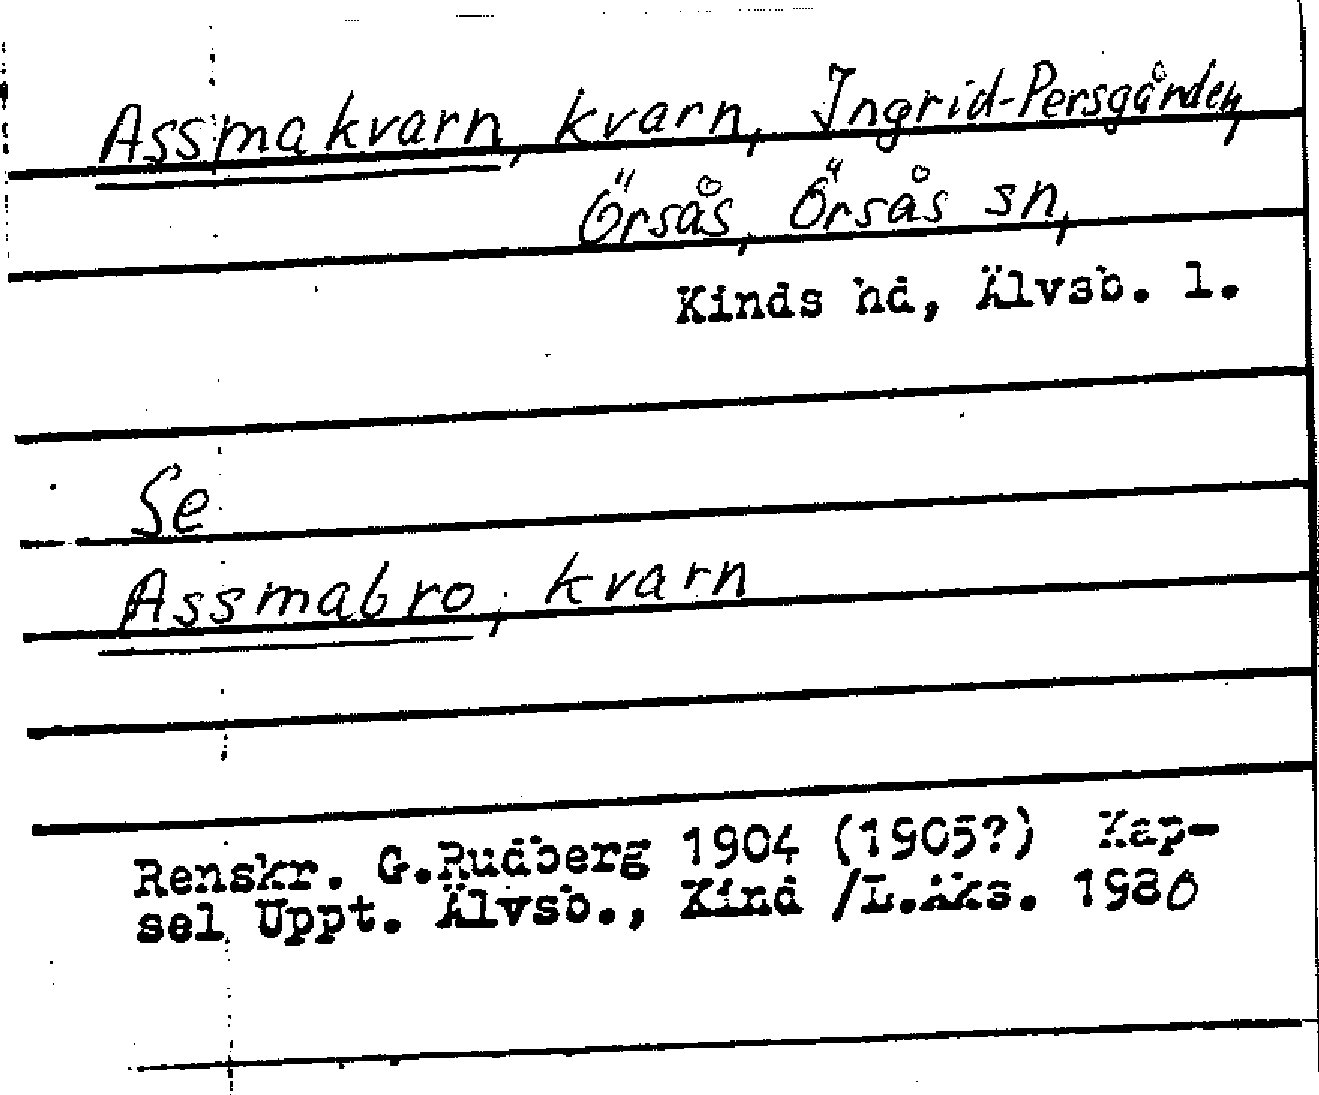 Assmakvarn, kvarn, Ingrid-Persgården,
Örsås, Örsås sn,
Kinds hd, Älvsb. l.
Se
Assmabro, kvarn
Renskr. G.Rudberg 1904 (1905?) Kap-
sel Uppt. Älvsb., Kind /L.Åks. 1980